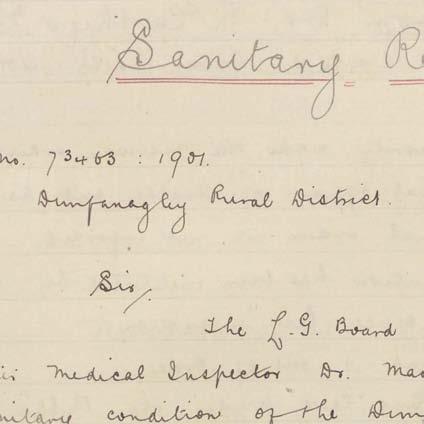 Sanitary Re
no. 73463 : 1901.
Dunfanaghy Rural District.
Sir/.
The L. G. Board
Medical Inspector Dr. Mac
nitary condition of the Dunf